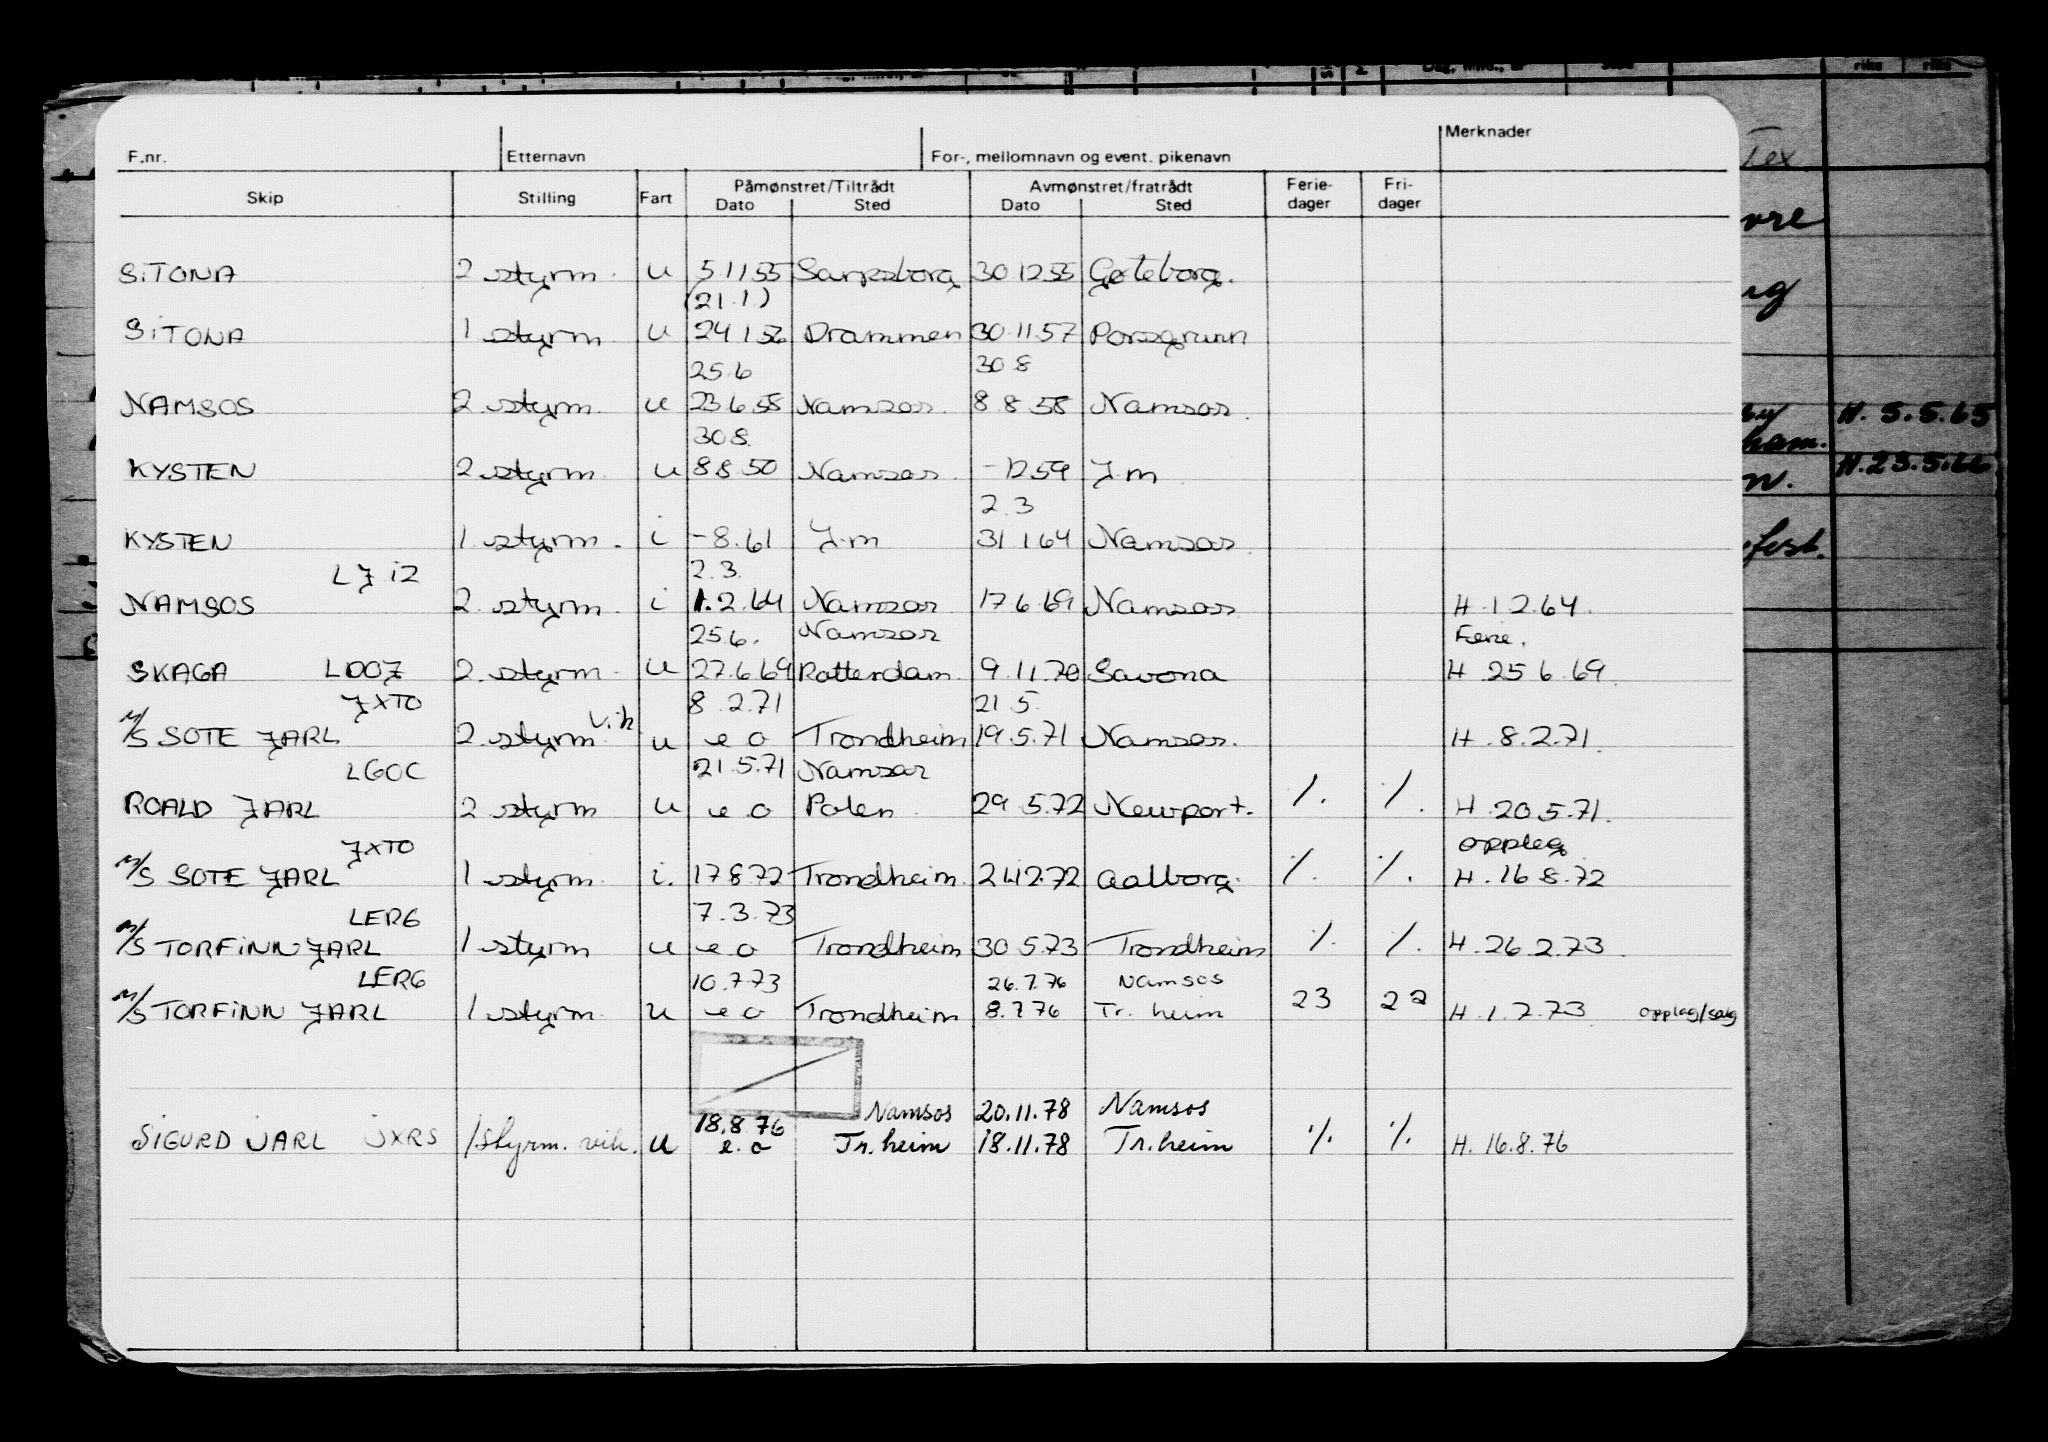 Merknader
F.nr. Etternavn For-, mellomnavn og event. pikenavn
Skip Stilling Fart Påmønstret/Tiltrådt Avmønstret/fratrådt Ferie- Fri-
Dato Sted Dato Sted dager dager
SiTONA 2 styrm. u 5.11.55 Sarpsborg 30.12.55 Gøteborg.
(21.1)
SiTONA 1 styrm u 24.1.56 Drammen 30.11.57 Porsgrunn
25.6 30.8
NAMSOS 2 styrm. u 23.6.58 Namsos. 8.8.58 Namsos.
30.8.
KYSTEN 2 styrm. u 8.8.50 Namsos. -12.59 J.m
2.3
KYSTEN 1 styrm. i -8.61 J.m 31.1.64 Namsos
LJiZ 2.3.
NAMSOS 2. styrm. i 1.2.64 Namsos 17.6.69 Namsos. H.1.2.64.
25.6. Namsos Ferie.
SKAGA LDOJ 2. styrm. u 27.6.69 Rotterdam. 9.11.70 Savona H 25.6.69.
JXTO 8.2.71 21.5.
M/S SOTE JARL 2. styrm. vik u e o Trondheim 19.5.71 Namsos. H.8.2.71.
LGOC 21.5.71 Namsos
ROALD JARL 2 styrm u e o Polen 29.5.72 Newport. ·/. ·/. H.20.5.71.
JXTO opplag
M/S SOTE JARL 1 styrm. i. 17.8.72 Trondheim. 21.12.72 Aalborg. ·/. ·/. H.16.8.72
LERG 7.3.73
M/S TORFiNN JARL 1 styrm u e o Trondheim 30.5.73 Trondheim ·/. ·/. H.26.2.73.
LERG 10.7.73 26.7.76 Namsos
M/S TORFiNN JARL 1 styrm. u e o Trondheim 8.7.76 Tr. heim 23 22 H.1.7.73 opplag/salg
18.8.76 Namsos 20.11.78 Namsos
SIGURD JARL JXRS 1 styrm. vik. u e.o Tr.heim 18.11.78 Tr.heim ·/. ·/. H. 16.8.76
Tex
H. 5.5.65
H.23.5.66